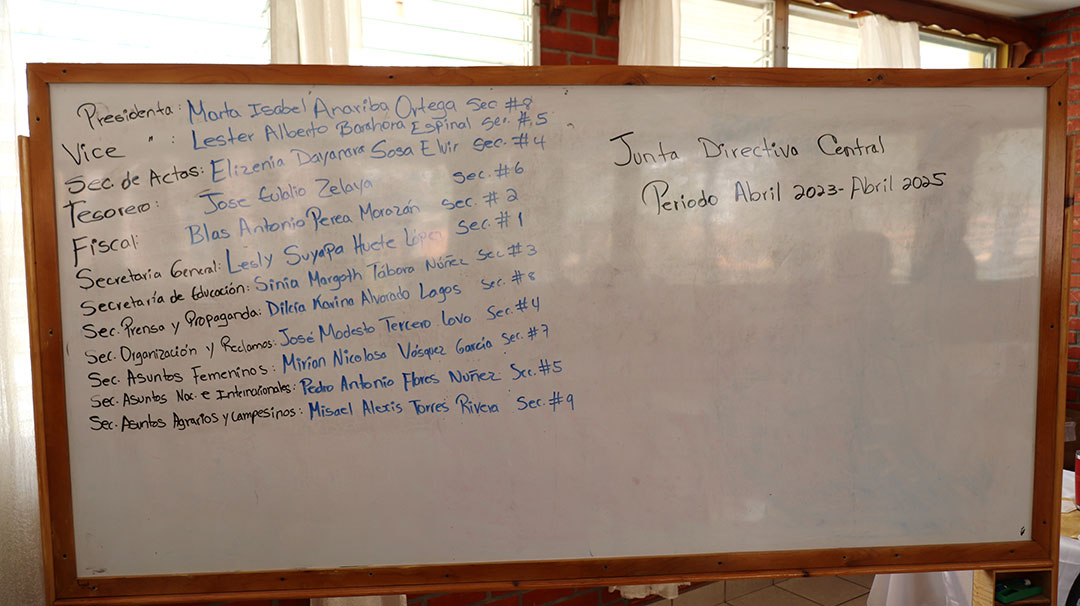 Presidenta: Marta Isabel Anariba Ortega Sec #8
Vice " : Lester Alberto Barahona Espinal Sec. #5
Sec. de Actas: Elizenia Dayanara Sosa Elvir Sec. #4
Tesorero: Jose Eulalio Zelaya Sec. #6
Fiscal: Blas Antonio Perea Morazán Sec. #2
Secretaria General: Lesly Suyapa Huete López Sec. #1
Secretaría de Educación: Sinia Margoth Tábora Núñez Sec #3
Sec. Prensa y Propaganda: Dilcia Karina Alvarado Lagos Sec. #8
Sec. Organización y Reclamos: José Modesto Tercero Lovo Sec. #4
Sec. Asuntos Femeninos: Mirian Nicolasa Vásquez García Sec. #7
Sec. Asuntos Nac. e Internacionales: Pedro Antonio Flores Nuñez Sec. #5
Sec. Asuntos Agrarios y Campesinos: Misael Alexis Torres Rivera Sec. #9
Junta Directiva Central
Periodo Abril 2023-Abril 2025